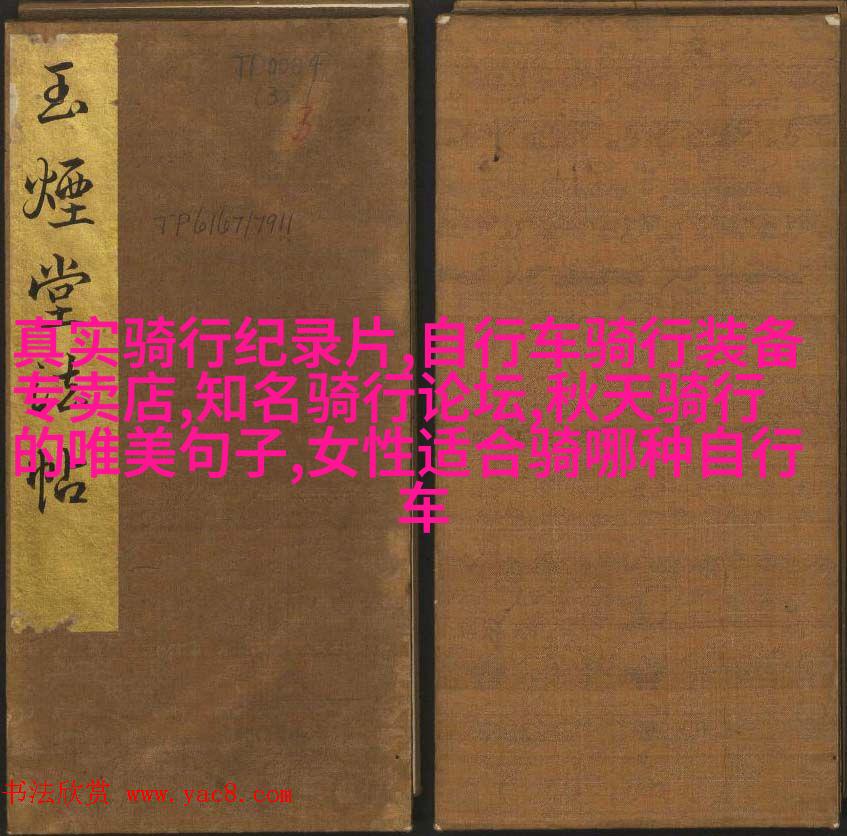 玉煙堂法帖
TP6167/7911
真实骑行纪录片,自行车骑行装备
专卖店,知名骑行论坛,秋天骑行
的唯美句子,女性适合骑哪种自行
车
书法欣赏 www.yac8.com